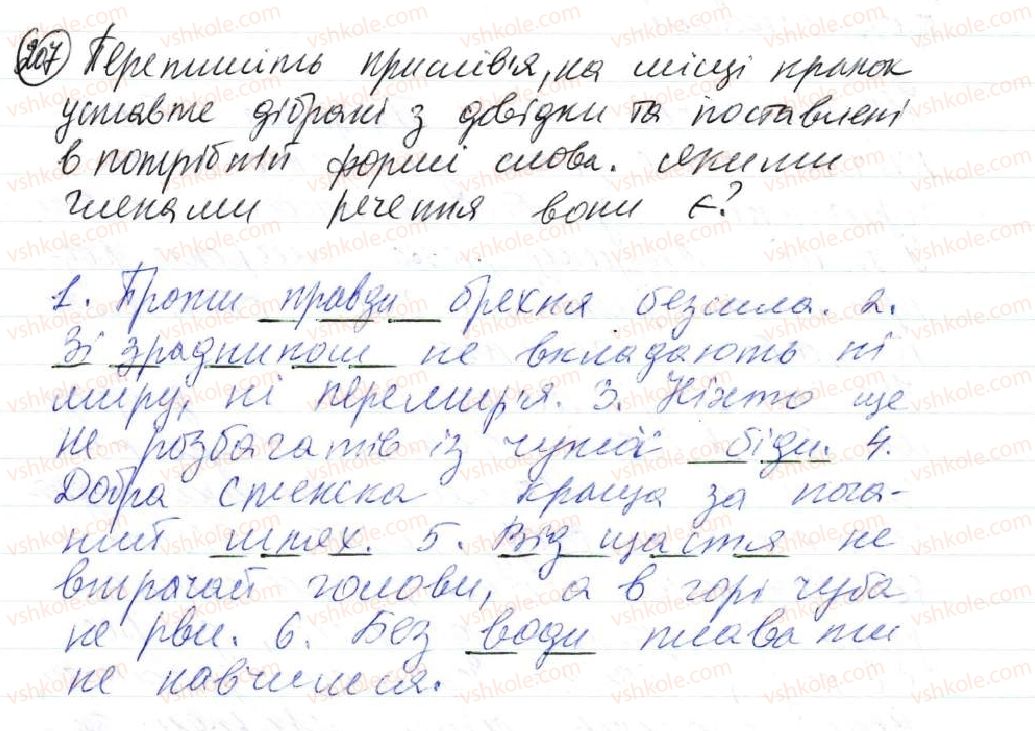 207 Перепишіть прислів'я, на місці крапок
уставте дібрані з довідки та поставлені
в потрібній формі слова. Якими
членами речення вони є?
1. Проти правди брехня безсила. 2.
Зі зрадником не вкладають ні
миру, ні перемир'я. 3. Ніхто ще
не розбагатів із чужої біди. 4.
Добра стежка краща за пога-
ний шлях. 5. Від щастя не
втрачай голови, а в горі чуба
не рви. 6. Без води плавати
не навчишся.